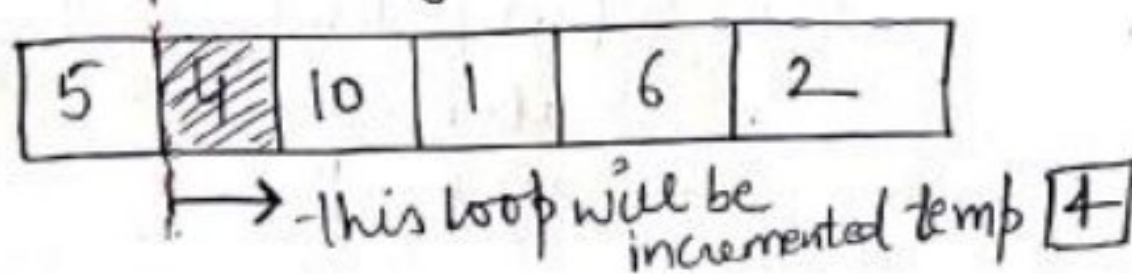 5 4 10 1 6 2
this loop will be
incremented temp 4